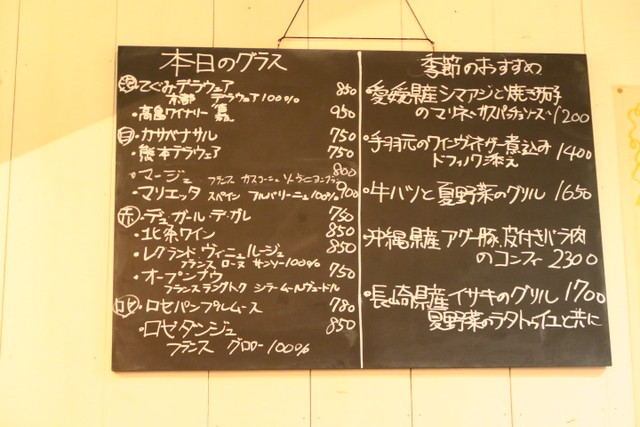 本日のグラス
てぐみデラウェア 850
デラウェア100%
・高畠ワイナリー 950
白 カサベナサル 750
・熊本デラウェア 750
・マージュ フランス ガスコーニュ 800
・マリエッタ スペイン アルバリーニョ100% 900
赤 デュガールデガレ 750
・北条ワイン 850
・レグランド ヴィニュルージュ 850
フランス ローヌ サンソー100%
・オープンブウ 750
フランスラングドク シラームールヴェードル
ロゼ ロゼパンプルムース 780
・ロゼダンジュ 850
フランス グロロー100%
季節のおすすめ
・愛媛県産シマアジと焼き茄子
のマリネ、ガスパチョソース 1200
・手羽元のワインヴィネガー煮込み
ドフィノワ添え 1400
・牛ハツと夏野菜のグリル 1650
・沖縄県産アグー豚、皮付きバラ肉
のコンフィ 2300
・長崎県産イサキのグリル 1700
夏野菜のラタトゥイユと共に